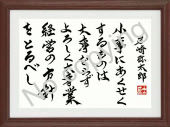 岩崎弥太郎
小事にあくせく
するものは
大事ならず
よろしく大事業
経営の方針
をとるべし